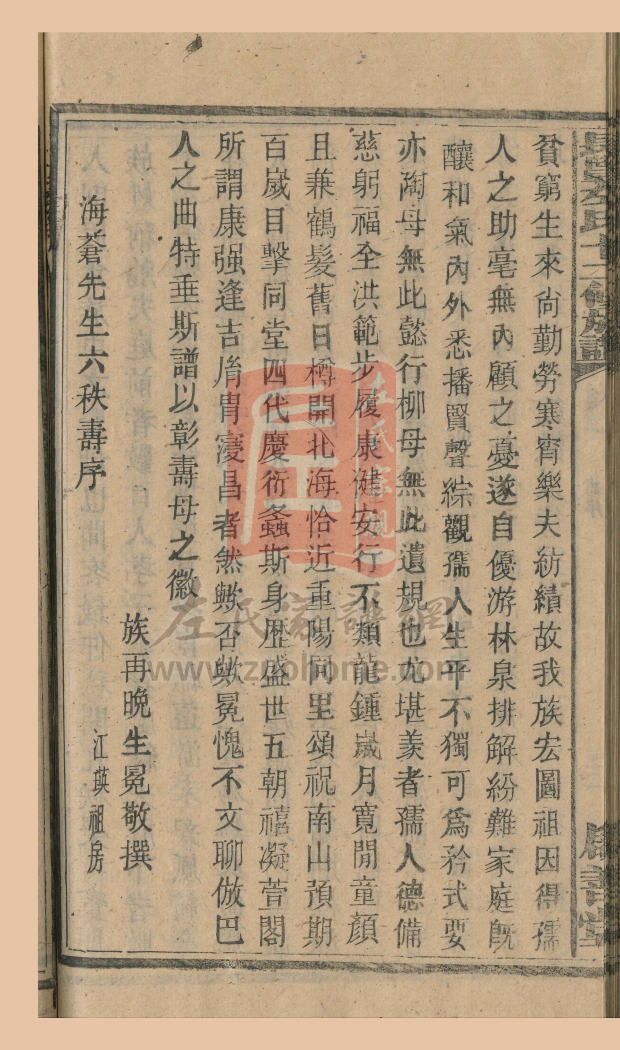 貧窮生來尙勤勞寒宵樂夫紡績故我族宏圖祖因得孺
人之助毫無內顧之憂遂自優游林泉排解紛難家庭旣
釀和氣內外悉播賢聲綜觀孺人生平不獨可爲矜式要
亦陶母無此懿行柳母無此遺規也尤堪羨者孺人德備
慈躬福全洪範步履康健安行不類龍鍾歲月寬閒童顏
且兼鶴髮舊日樽開北海恰近重陽同里頌祝南山預期
百歲目擊同堂四代慶衍螽斯身歷盛世五朝禧凝萱閣
所謂康强逢吉胤胄寖昌者然歟否歟冕愧不文聊倣巴
人之曲特垂斯譜以彰壽母之徽
族再晚生冕敬撰
江英祖房
海蒼先生六秩壽序
左氏家譜網
www.zupuhome.com